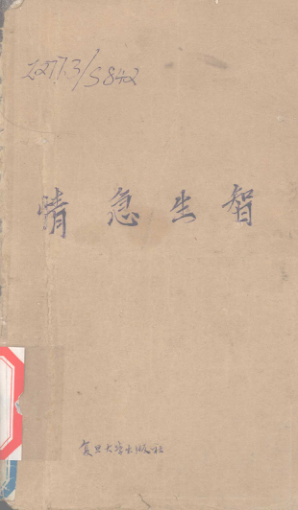 I277.3/S842
情急生智
复旦大学出版社